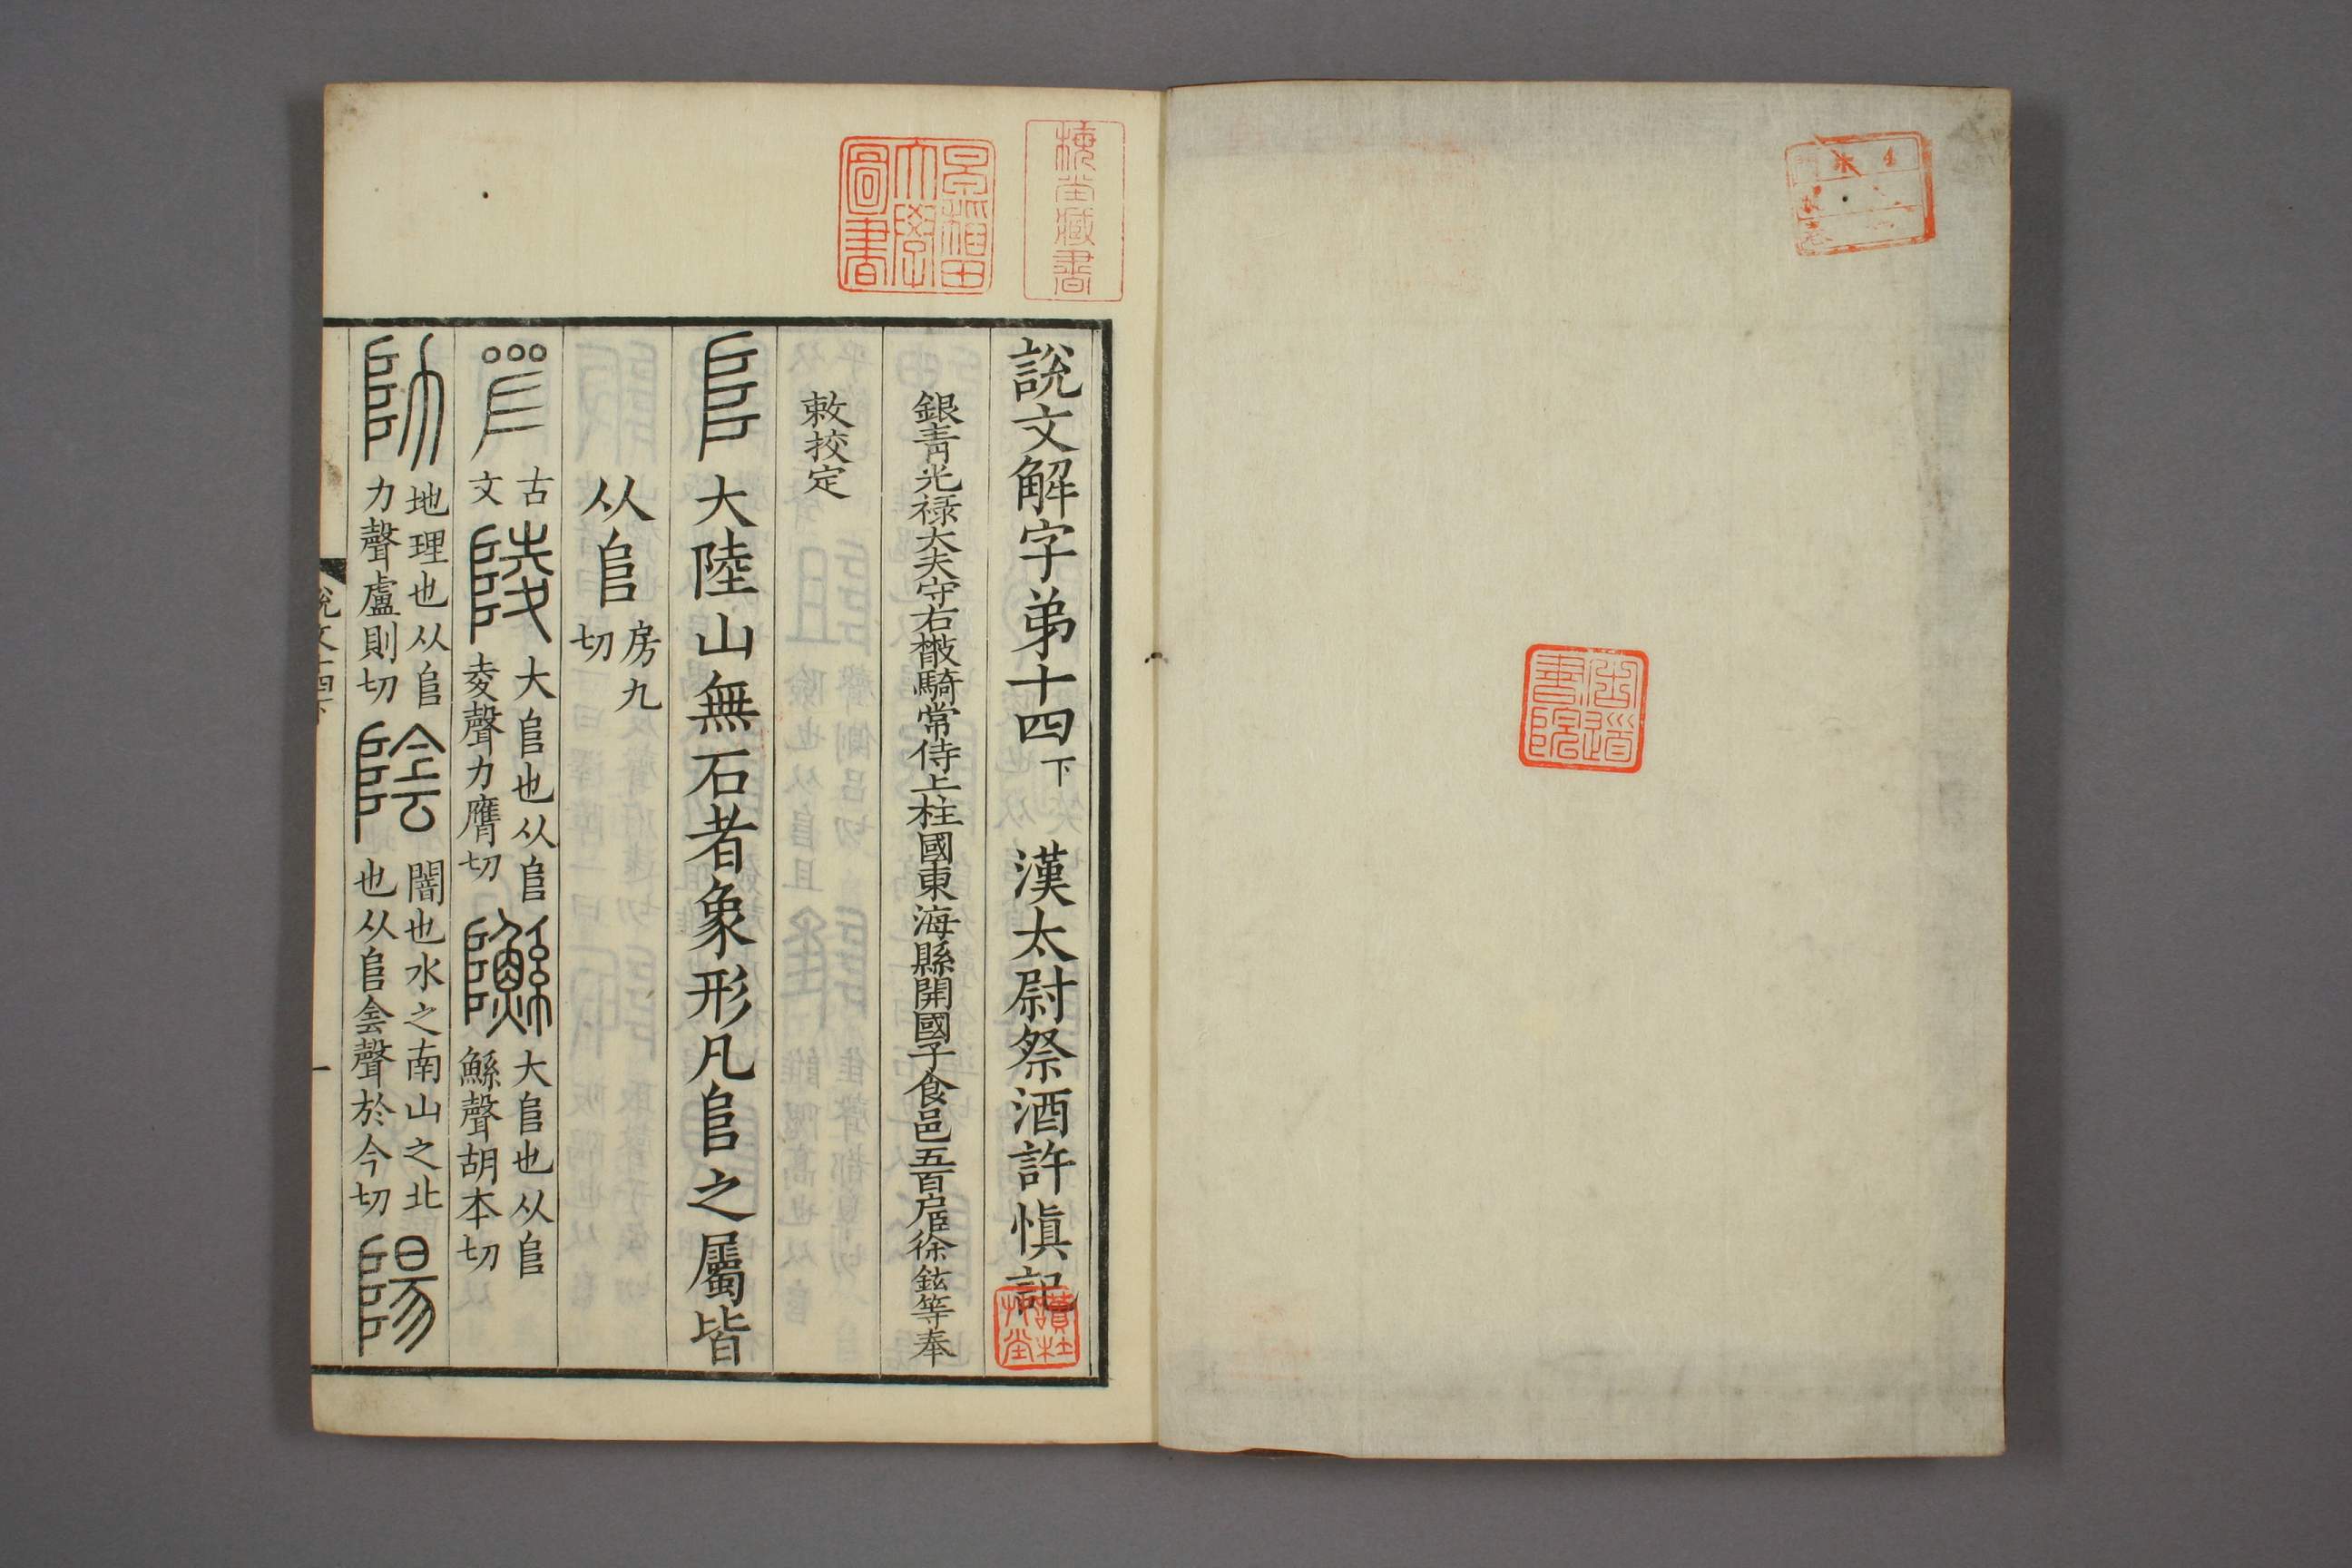 說文解字弟十四下 漢太尉祭酒許愼記
銀青光禄大夫守右散騎常侍上柱國東海縣開國子食邑五百户臣徐鉉等奉
敕挍定
𨸏 大陸山無石者象形凡𨸏之屬皆
从𨸏 房九切
古文 陵 大𨸏也从𨸏夌聲力膺切 䲗 大𨸏也从𨸏鯀聲胡本切
阞 地理也从𨸏力聲盧則切 陰 闇也水之南山之北也从𨸏侌聲於今切 陽
說文十四下
一
梅堂藏書
早稲田大學圖書
讀杜艸堂
書院